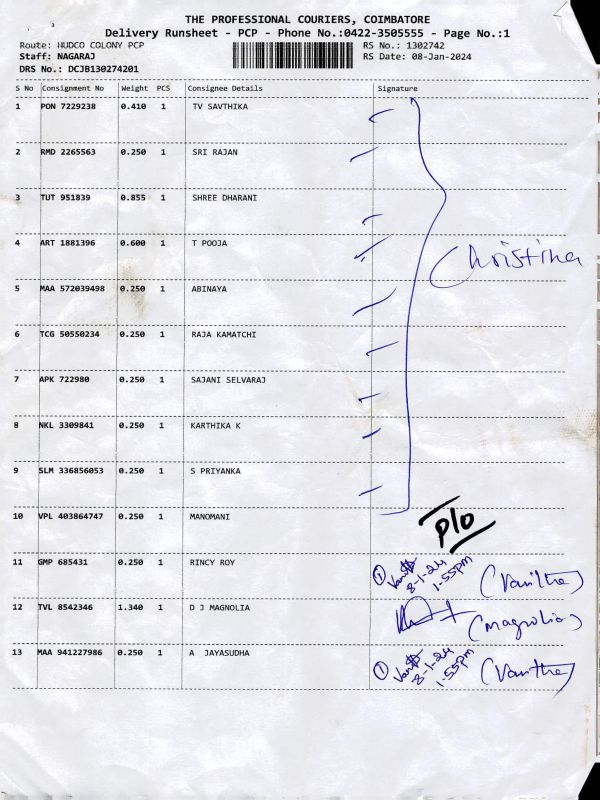 THE PROFESSIONAL COURIERS, COIMBATORE
Delivery Runsheet - PCP - Phone No.:0422-3505555 - Page No.:1
Route: HUDCO COLONY PCP RS No.: 1302742
Staff: NAGARAJ RS Date: 08-Jan-2024
DRS No.: DCJB130274201
S No Consignment No Weight PCS Consignee Details Signature
1 PON 7229238 0.410 1 TV SAVTHIKA
2 RMD 2265563 0.250 1 SRI RAJAN
3 TUT 951839 0.855 1 SHREE DHARANI
4 ART 1881396 0.600 1 T POOJA
Christina
5 MAA 572039498 0.250 1 ABINAYA
6 TCG 50550234 0.250 1 RAJA KAMATCHI
7 APK 722980 0.250 1 SAJANI SELVARAJ
8 NKL 3309841 0.250 1 KARTHIKA K
9 SLM 336856053 0.250 1 S PRIYANKA
10 VPL 403864747 0.250 1 MANOMANI P/o
11 GMP 685431 0.250 1 RINCY ROY
① 8-1-24 1.55pm (Vanitha)
12 TVL 8542346 1.340 1 D J MAGNOLIA (Magnolia)
13 MAA 941227986 0.250 1 A JAYASUDHA
① 8-1-24 1.55pm (Vanitha)